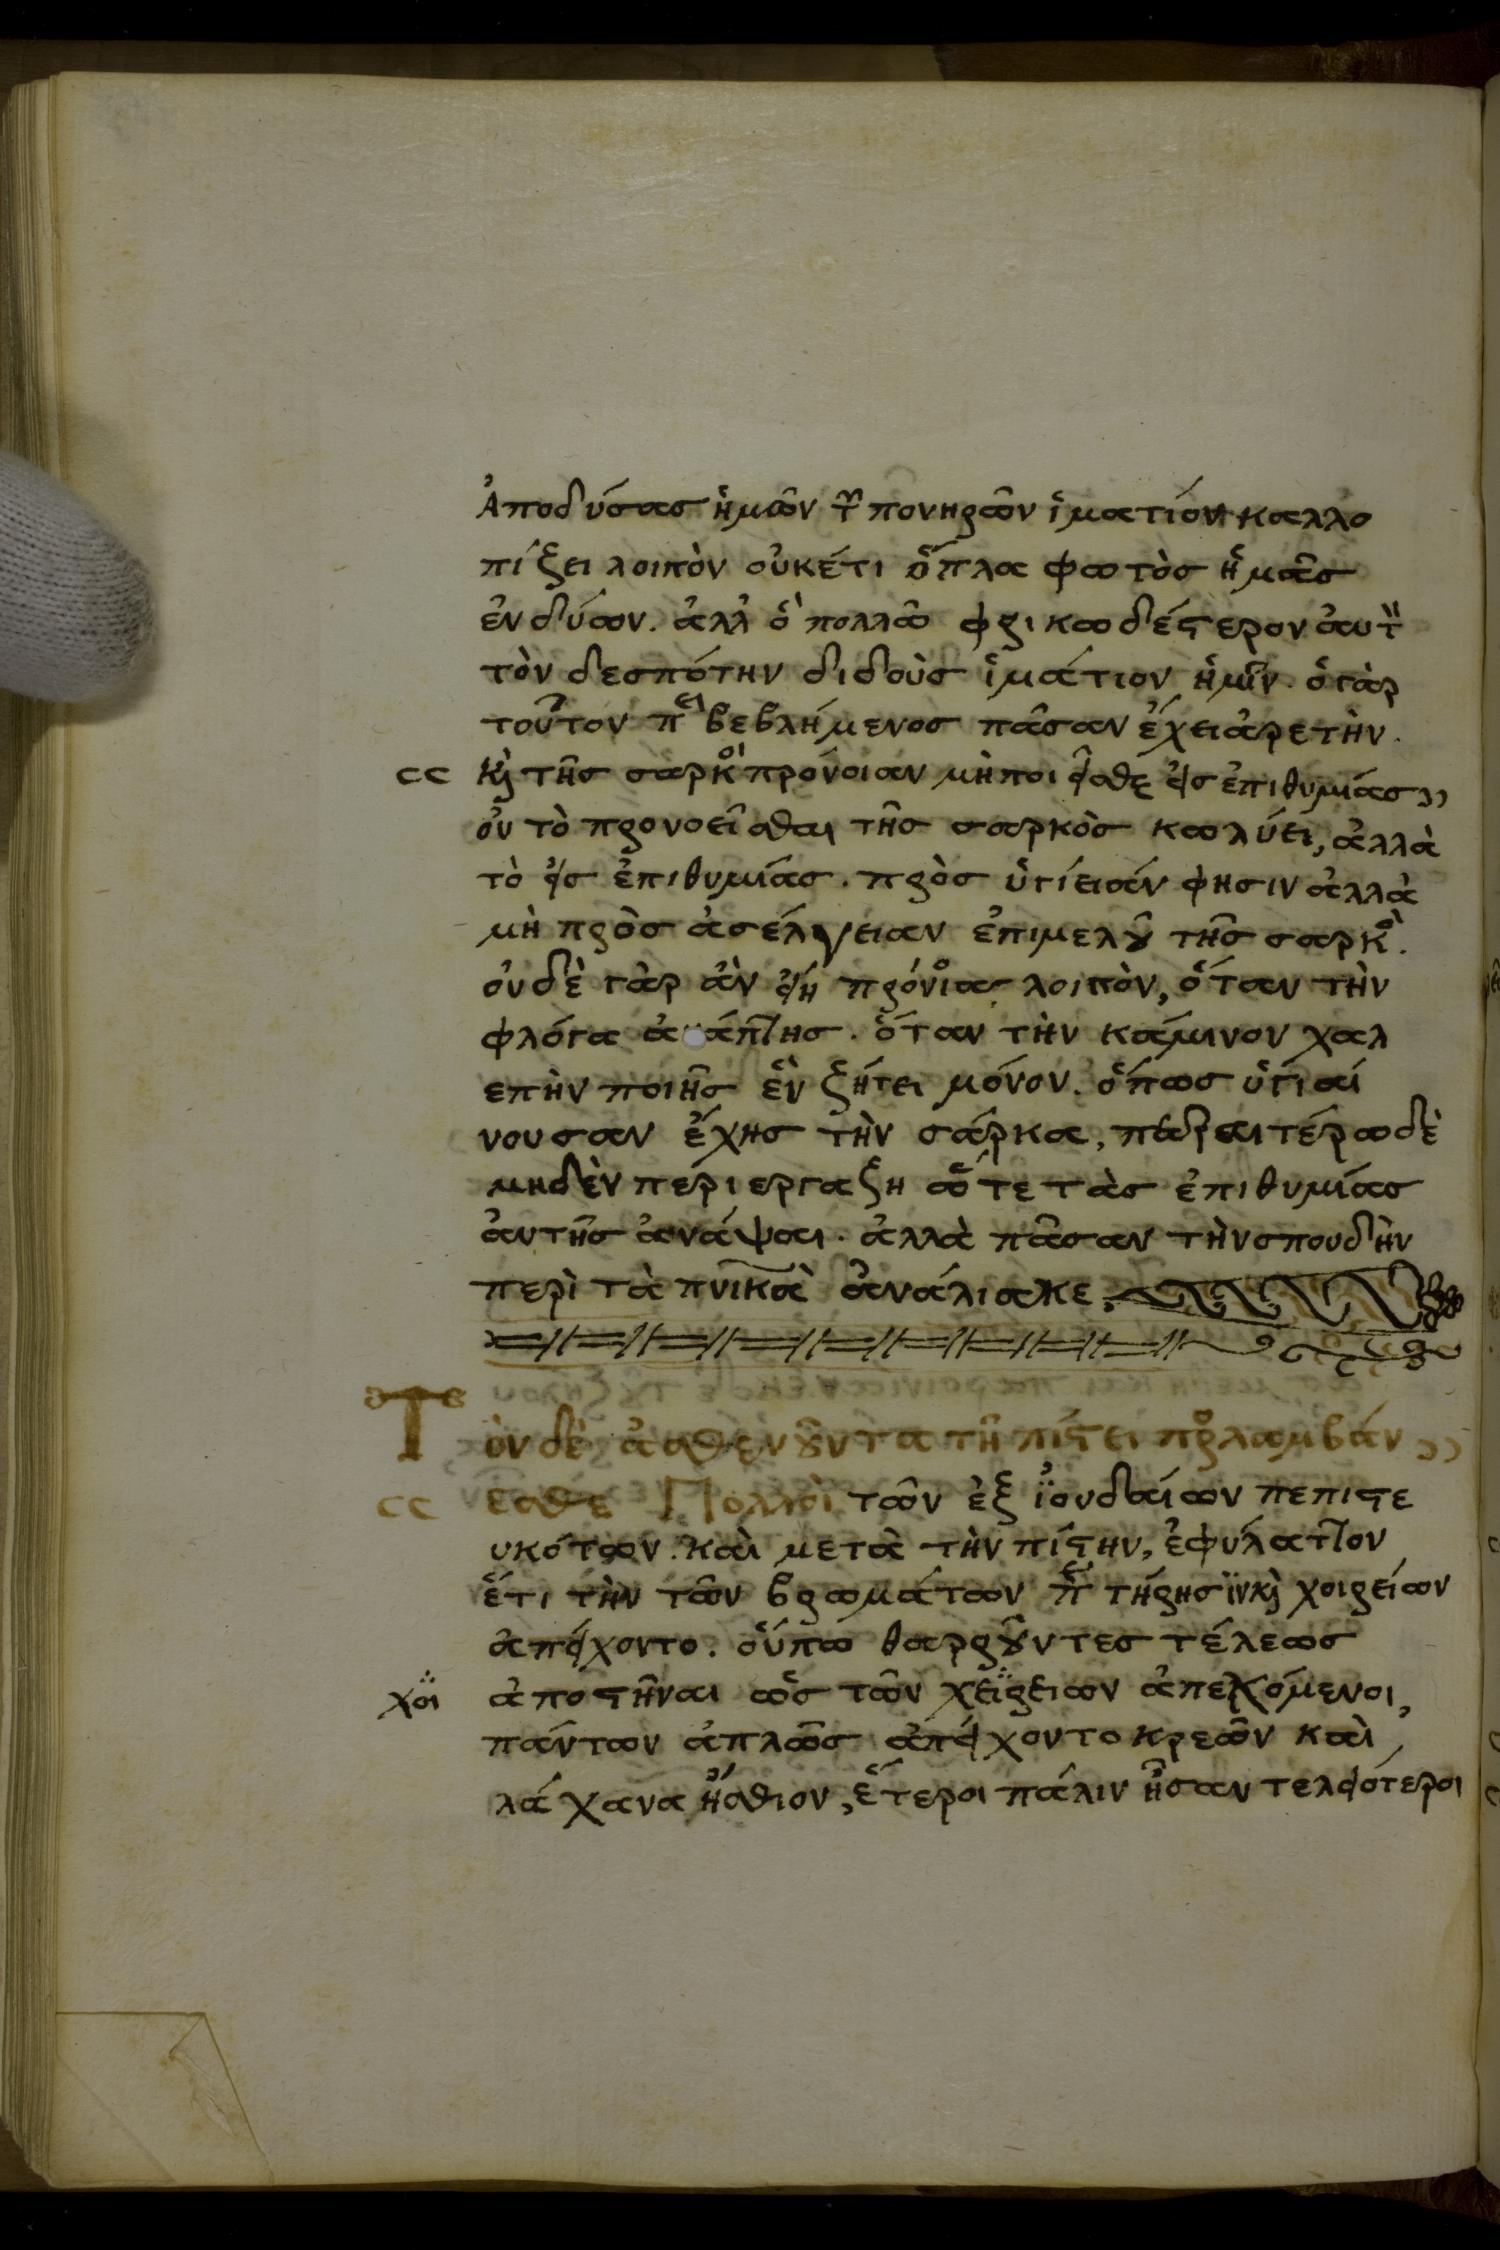 Ἀποδύσας ἡμῶν τ πονηρῶν ἱματίων καλλο
πίζει λοιπὸν οὐκέτι ὅπλα φωτὸς ἡμᾶς
ἐνδύων. ἀλλ' ὃ πολλῶ φρικωδέστερον ἀυτ
τὸν δεσπότην διδοὺς ἱμάτιον ἡμῖν. ὁ γὰρ
τοῦτον πειβεβλήμενος πᾶσαν ἔχει ἀρετὴν.
κὶ τῆς σαρκὸ πρόνοιαν μὴ ποιεῖσθε εἰς ἐπιθυμίας
οὐ τὸ προνοεῖσθαι τῆς σαρκὸς κωλύει, ἀλλὰ
τὸ εἰς ἐπιθυμίας. πρὸς ὑγίειάν φησιν ἀλλὰ
μὴ πρὸς ἀσέλγειαν ἐπιμελοῦ τῆς σαρκὸ.
οὐδὲ γὰρ ἂν εἴη πρόνοια λοιπὸν, ὅταν τὴν
φλόγα ἀνάπτης. ὅταν τὴν κάμινον χαλ
επὴν ποιῆς ἓν ζήτει μόνον. ὅπως ὑγιαί
νουσαν ἔχης τὴν σάρκα, παραιτέρω δὲ
μηδὲν περιεργάζη ὥστε τὰς ἐπιθυμίας
ἀυτῆς ἀνάψαι. ἀλλὰ πᾶσαν τὴν σπουδὴν
περὶ τὰ πνικὰ ἀνάλισκε.
Τὸν δὲ ἀσθενοῦντα τῆ πίστει προλαμβάν
εσθε Πολλοὶ τῶν ἐξ ἰουδαίων πεπιστε
υκότων. καὶ μετὰ τὴν πίστην, ἐφύλαττον
ἔτι τὴν τῶν βρωμάτων πε τήρησιν κὶ χοιρείων
ἀπείχοντο. οὔπω θαρροῦντες τέλεως
χοι ἀποστῆναι ὡς τῶν χειρειων ἀπεχόμενοι,
πάντων ἁπλῶς ἀπείχοντο κρεῶν καὶ
λάχανα ἤσθιον, ἕτεροι πάλιν ἦσαν τελειότεροι